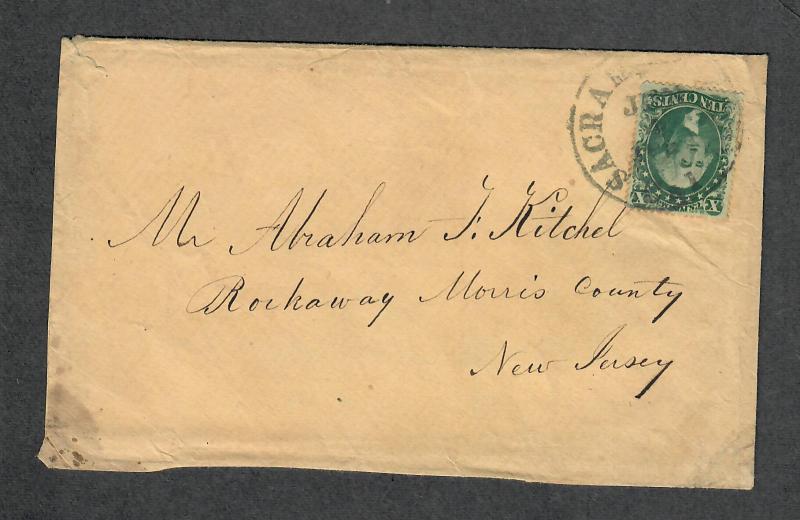 SACRAM
TEN CENTS
X X
Mr Abraham F. Kitchel
Rockaway Morris County
New Jersey